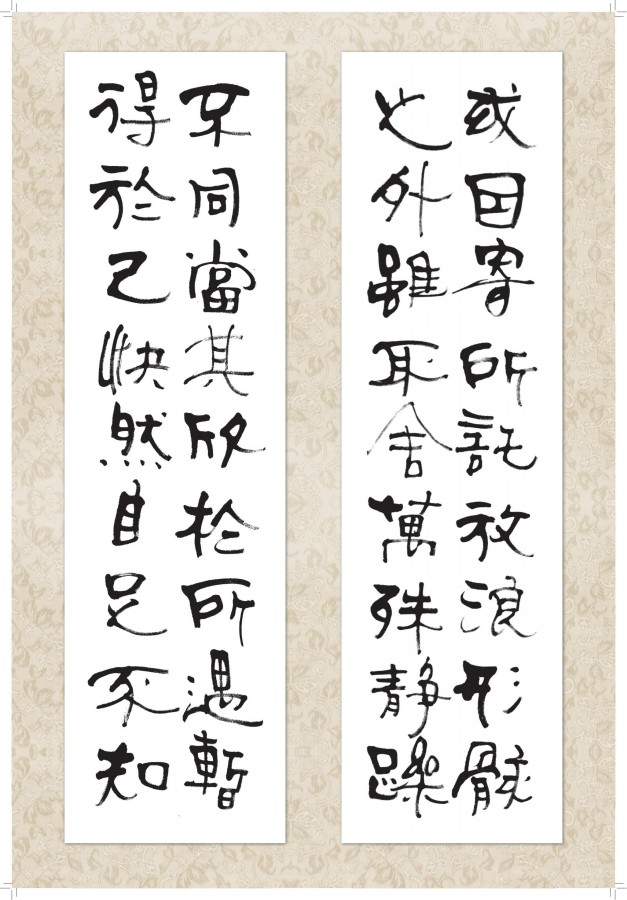 或因寄所託放浪形骸
之外雖取舍萬殊静躁
不同當其欣於所遇暫
得於己快然自足不知